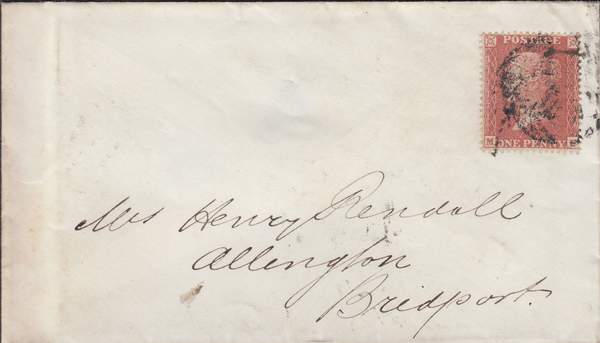 POSTAGE
ONE PENNY
Mrs Henry Rendall
Allington
Bridport.